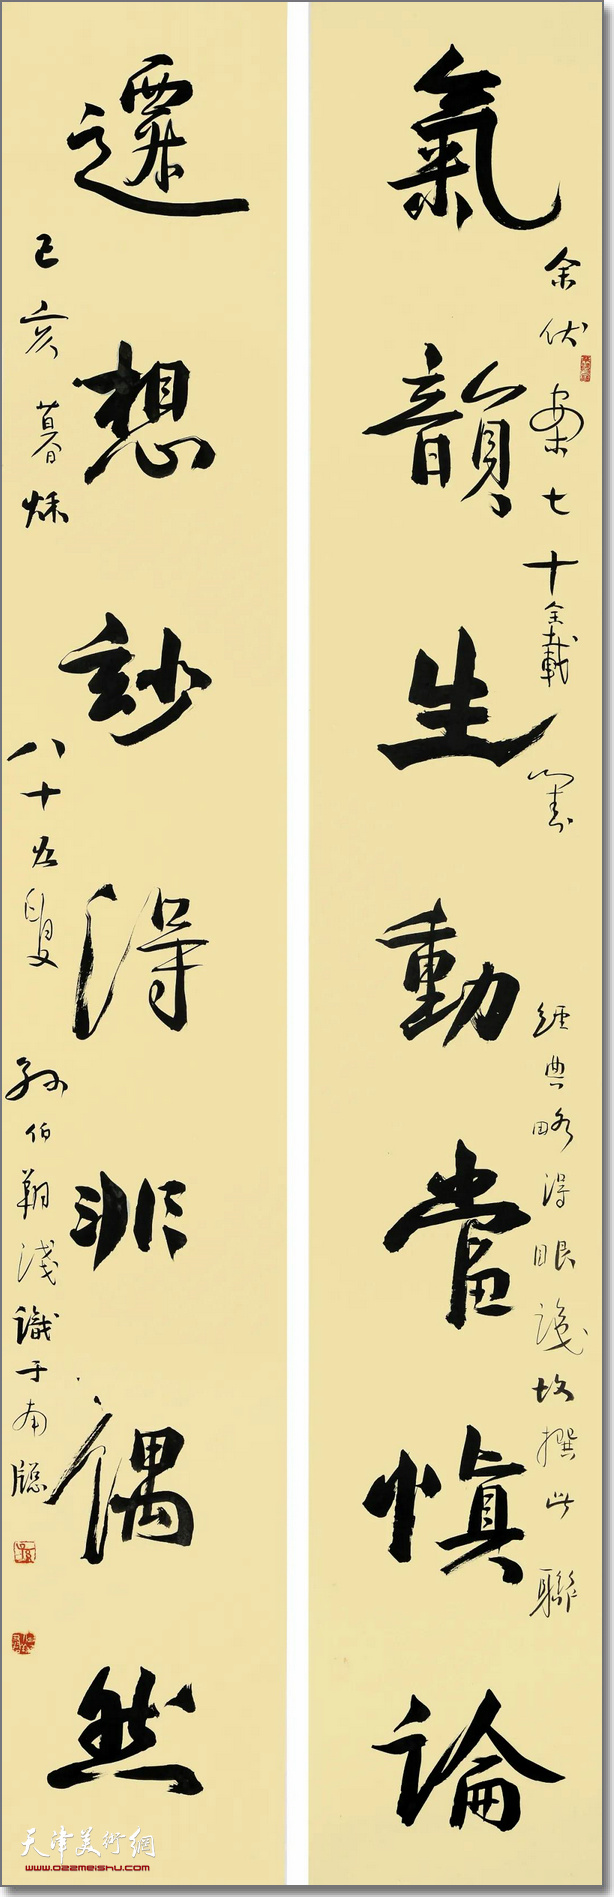 氣韻生動當慎論
遷想妙得非偶然
余伏案七十余載 寫
經典略得眼淺故撰此聯
己亥暮秌
八十五叟
孫伯翔淺識于南牕
天津美術網
www.022meishu.com